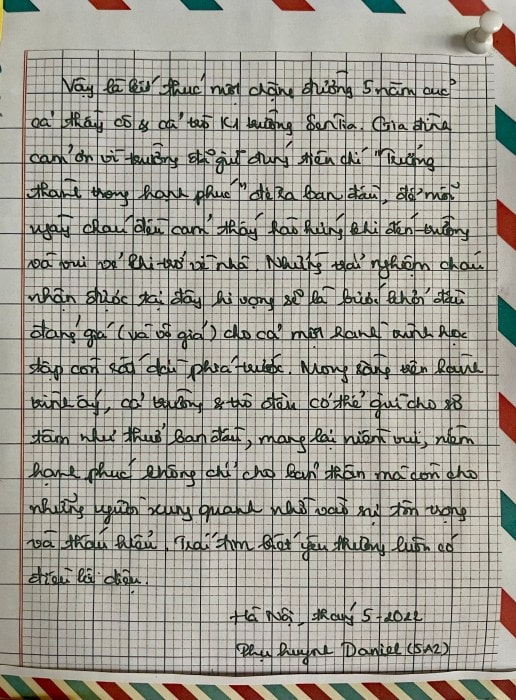 Vậy là kết thúc một chặng đường 5 năm của
cả thầy cô & cả trò K1 trường SenTia. Gia đình
cảm ơn vì trường đã giữ đúng tiên chí "Trưởng
thành trong hạnh phúc" đề ra ban đầu, để mỗi
ngày cháu đều cảm thấy hào hứng khi đến trường
và vui vẻ khi trở về nhà. Những trải nghiệm cháu
nhận được tại đây hi vọng sẽ là bước khởi đầu
đáng giá (và vô giá) cho cả một hành trình học
tập còn rất dài phía trước. Mong rằng trên hành
trình ấy, cả trường & trò đều có thể giữ cho sơ
tâm như thuở ban đầu, mang lại niềm vui, niềm
hạnh phúc không chỉ cho bản thân mà còn cho
những người xung quanh nhờ vào sự tôn trọng
và thấu hiểu. Trái tim biết yêu thương luôn có
điều kì diệu.
Hà Nội, tháng 5-2022
Phụ huynh Daniel (5A2)